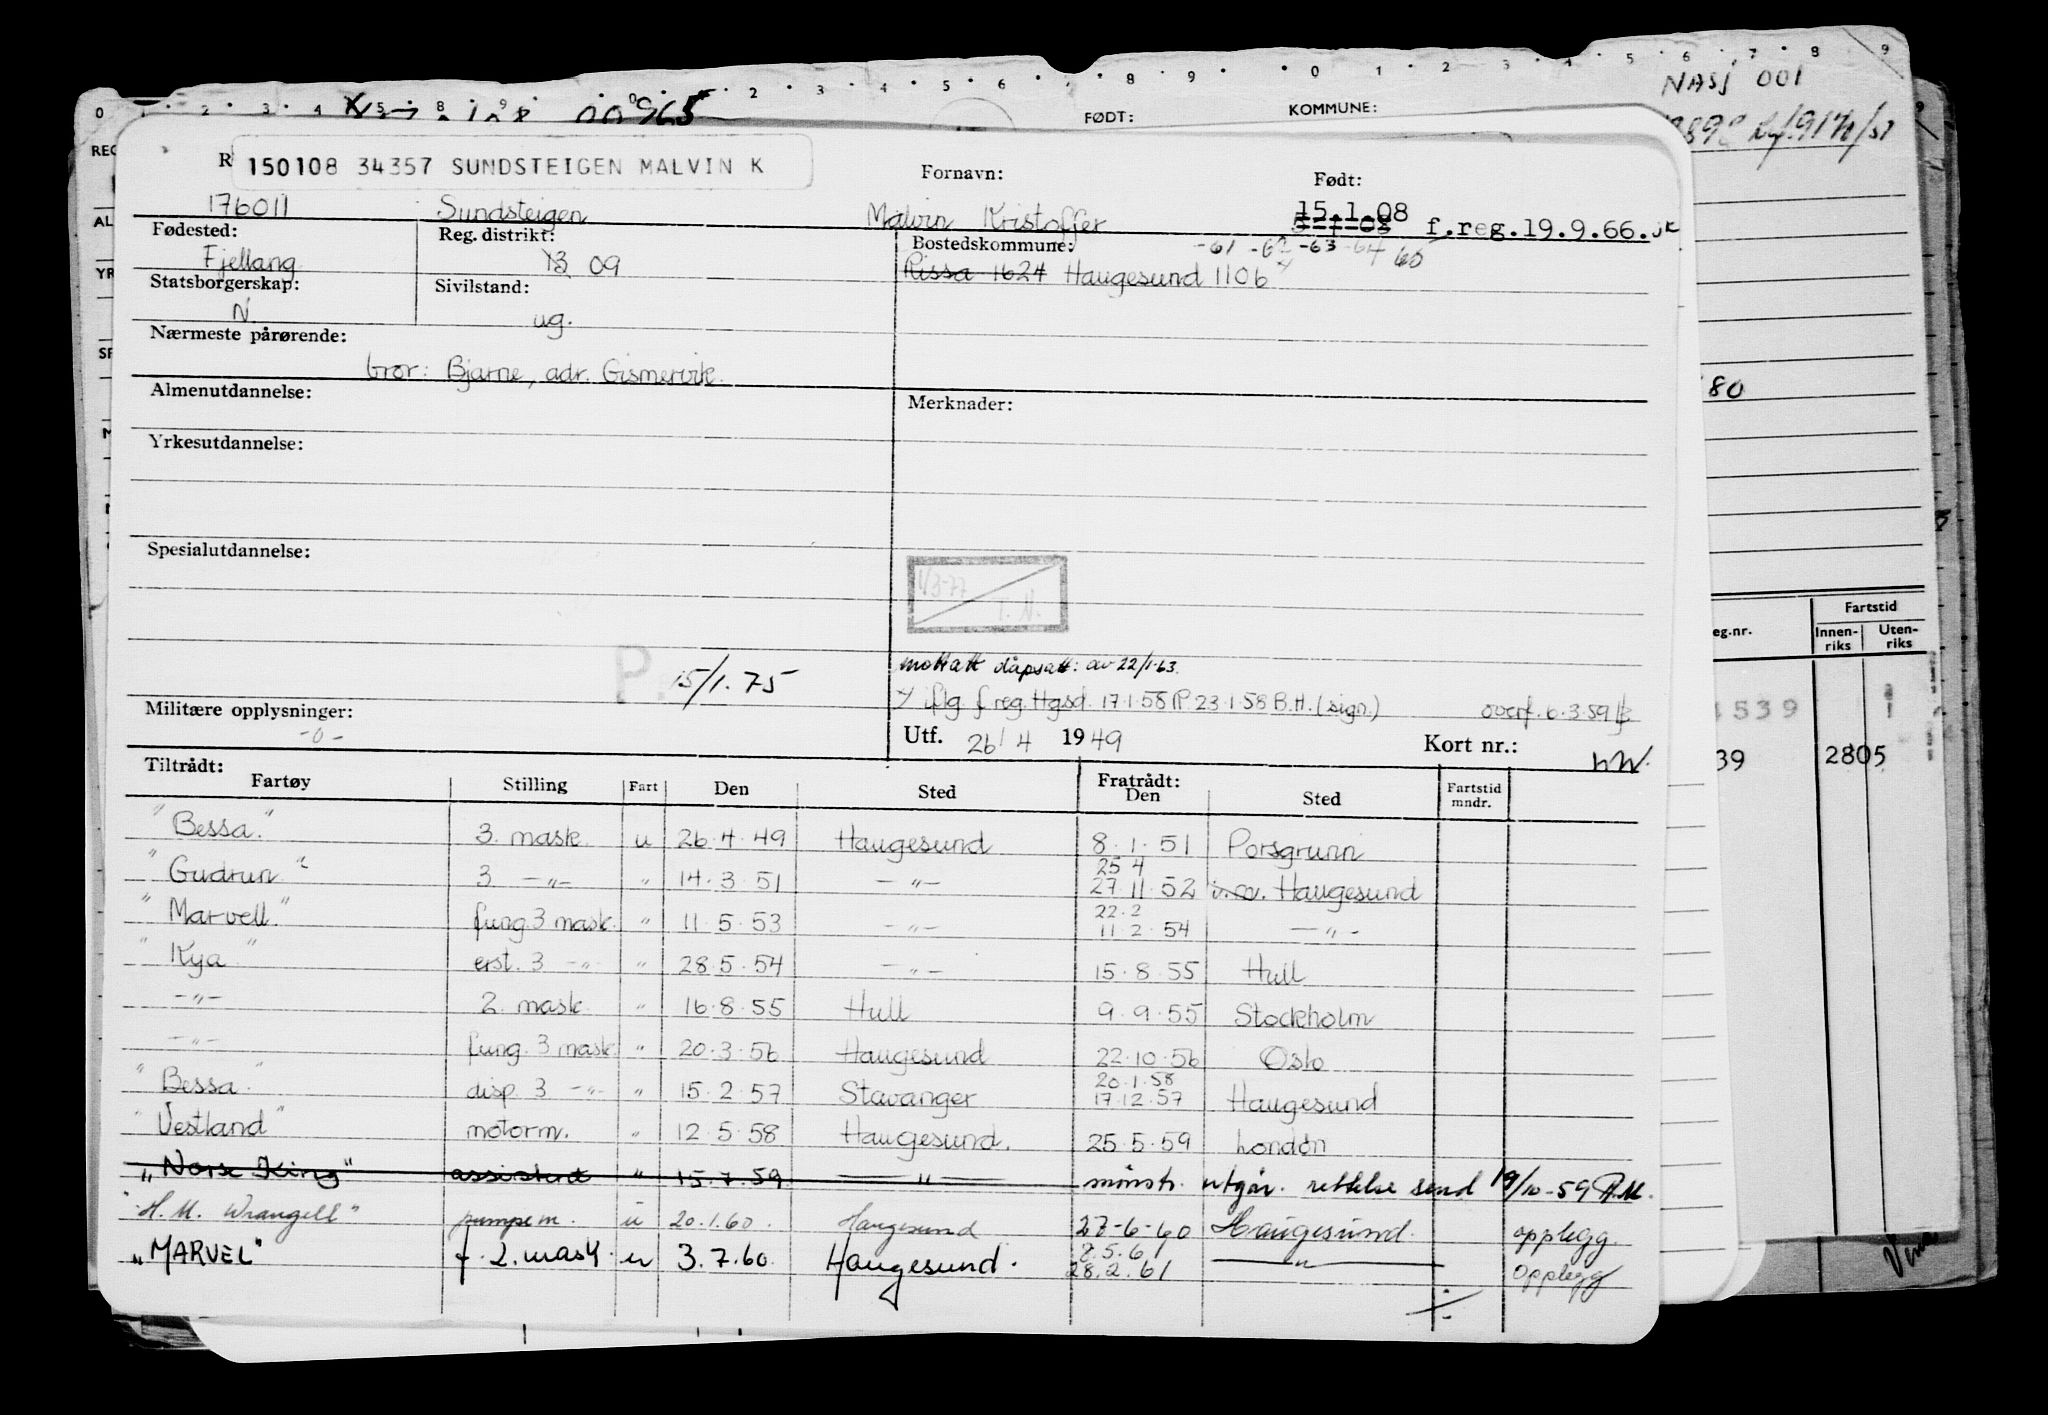 NASJ 001
0 2 3 4 5 8 9 0 2 3 4 5 6 7 8 9 0 1 2 3 4 5 6 7 8 9
00965
FØDT: KOMMUNE:
150108 34357 SUNDSTEIGEN MALVIN K
Fornavn: Født:
176011 Sundsteigen Malvin Kristoffer 15.1.08
5-1-08 f.reg.19.9.66.
Fødested: Reg. distrikt: Bostedskommune: -61 -62 -63 -64 65
Fjellang 13 09 Rissa 1624 Haugesund 1106
Statsborgerskap: Sivilstand:
N. ug.
Nærmeste pårørende:
bror: Bjarne, adr. Gismervik.
Almenutdannelse: Merknader:
80
Yrkesutdannelse:
Spesialutdannelse:
1/3-77
T. N.
Fartstid
eg.nr. Innen-riks Uten-riks
mottatt dåpsatt: av 22/1-63.
P. 15/1.75
iflg. f reg. Hgsd. 17.1.58 P 23.1.58 B.H. (sign.) overf. 6.3.59
4539
Militære opplysninger:
-0-
Utf. 26/4 1949 Kort nr.:
39 2805
Tiltrådt: Fratrådt:
Fartøy Stilling Fart Den Sted Den Sted Fartstid mndr.
"Bessa." 3. mask. u 26.4.49 Haugesund 8.1.51 Porsgrunn
25 4
"Gudrun" 3 -"- " 14.3.51 -"- 27.11.52 Haugesund
22.2
"Marvell" fung. 3 mask. " 11.5.53 -"- 11.2.54 -"-
"Kya" erst. 3 -"- " 28.5.54 -"- 15.8.55 Hull
-"- 2. mask. " 16.8.55 Hull 9.9.55 Stockholm
-"- fung. 3 mask. " 20.3.56 Haugesund 22.10.56 Oslo
20.1.58
"Bessa" disp. 3 -"- " 15.2.57 Stavanger 17.12.57 Haugesund
"Vestland" motorm. " 12.5.58 Haugesund. 25.5.59 London
"Norse King" assistent " 15.7.59 " mønstr. utgår. rettelse send 19/10-59
"H. M. Wrangell" pumpem. u 20.1.60. Haugesund 27-6-60 Haugesund. opplegg.
8.5.61
"MARVEL" f. 2. mask u 3.7.60. Haugesund. 28.2.61 " opplegg